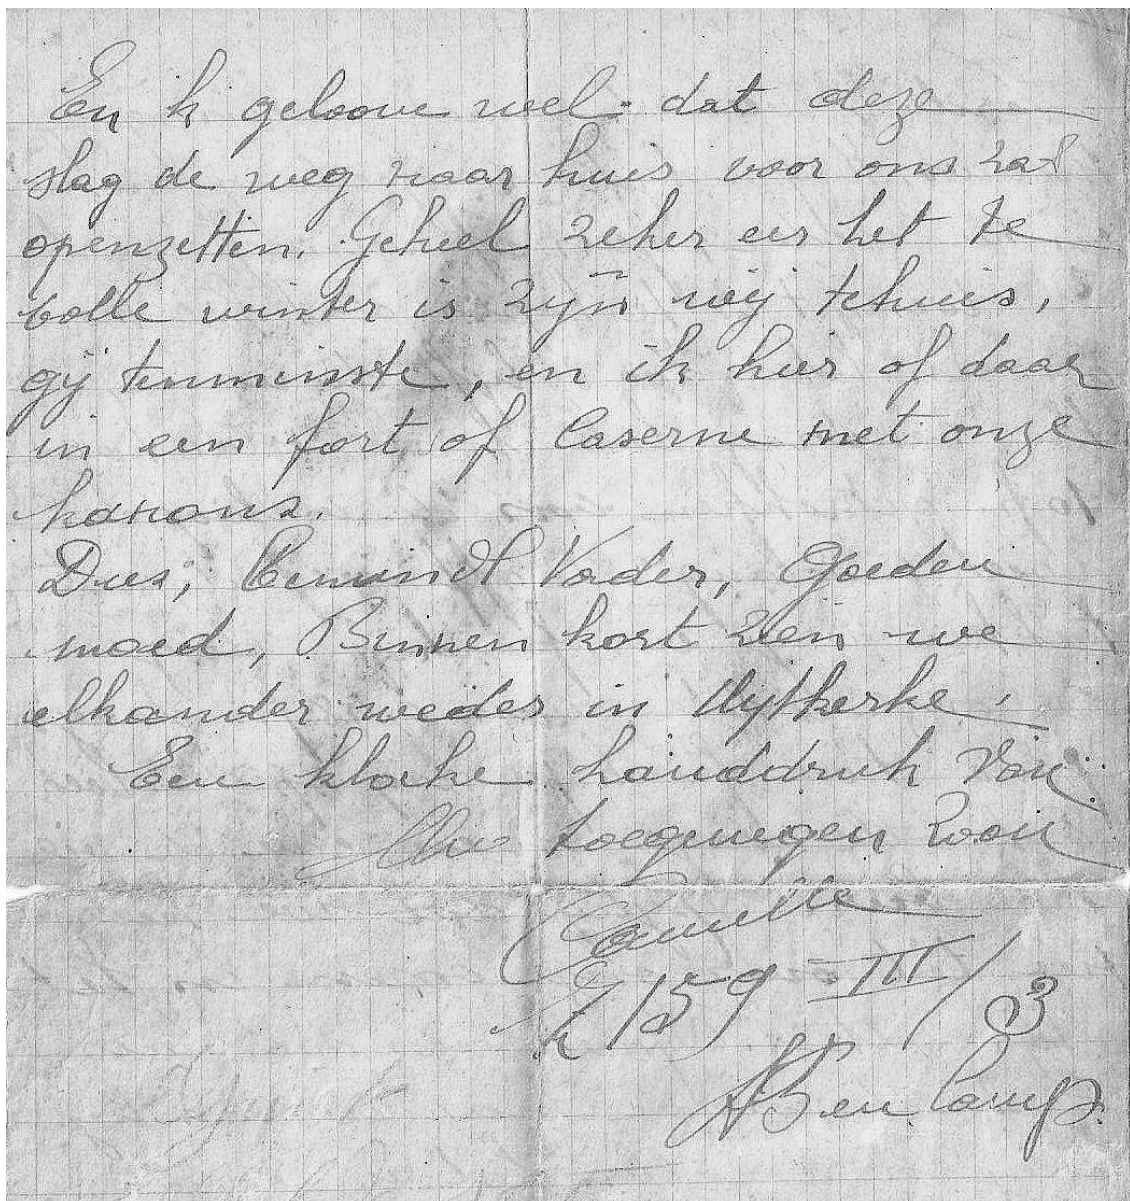 En k geloove wel dat deze
slag de weg naar huis voor ons zal
openzetten. Geheel zeker eer het te
volle winter is zijn wij tehuis,
gij tenminste, en ik hier of daar
in een fort of Caserne met onze
kanons.
Dus, Bemind Vader, Goeden
moed, Binnen kort zien we
elkander weder in Uytkerke,
Een kloeke handdruk van
Uw toegenegen zoon
Camille
Z 159 III/3
A B en Camp.